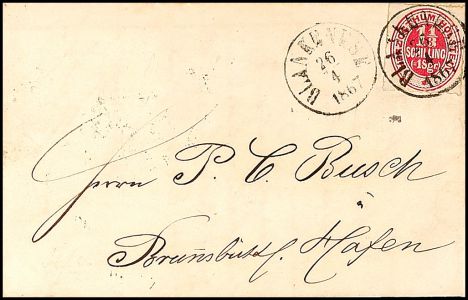 BLANKENESE
26
4
1867
HERZOGTHUM HOLSTEIN
1 1/4
SCHILLING
Herrn P. C. Busch
Brunsbüttl. Hafen